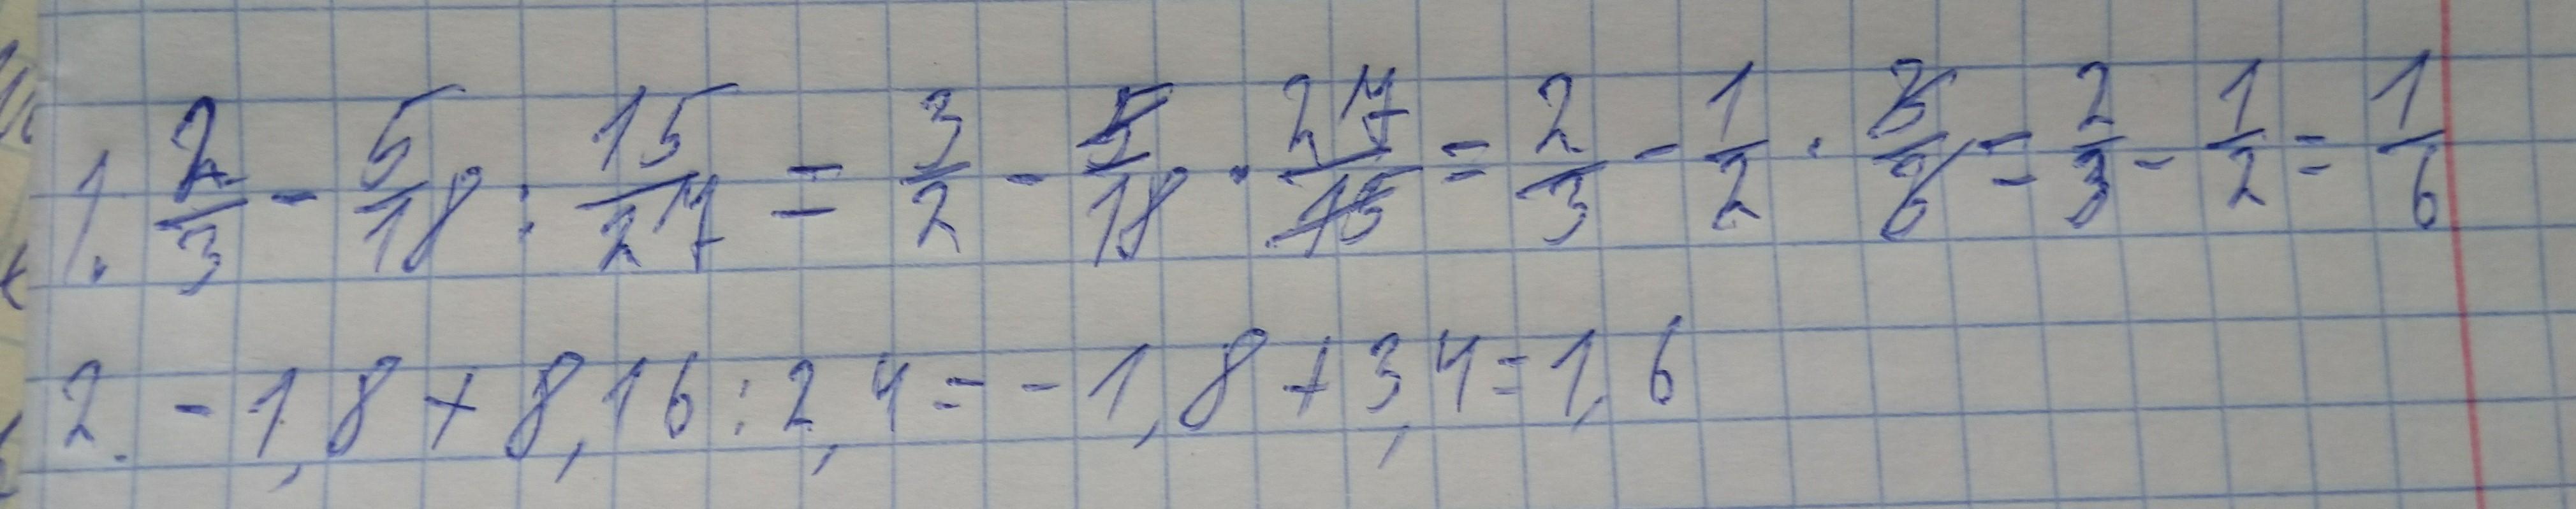 1. 2/3 - 5/18 : 15/27 = 3/2 - 5/18 · 27/15 = 2/3 - 1/2 · 3/6 = 2/3 - 1/2 = 1/6
2. -1,8 + 8,16 : 2,4 = -1,8 + 3,4 = 1,6